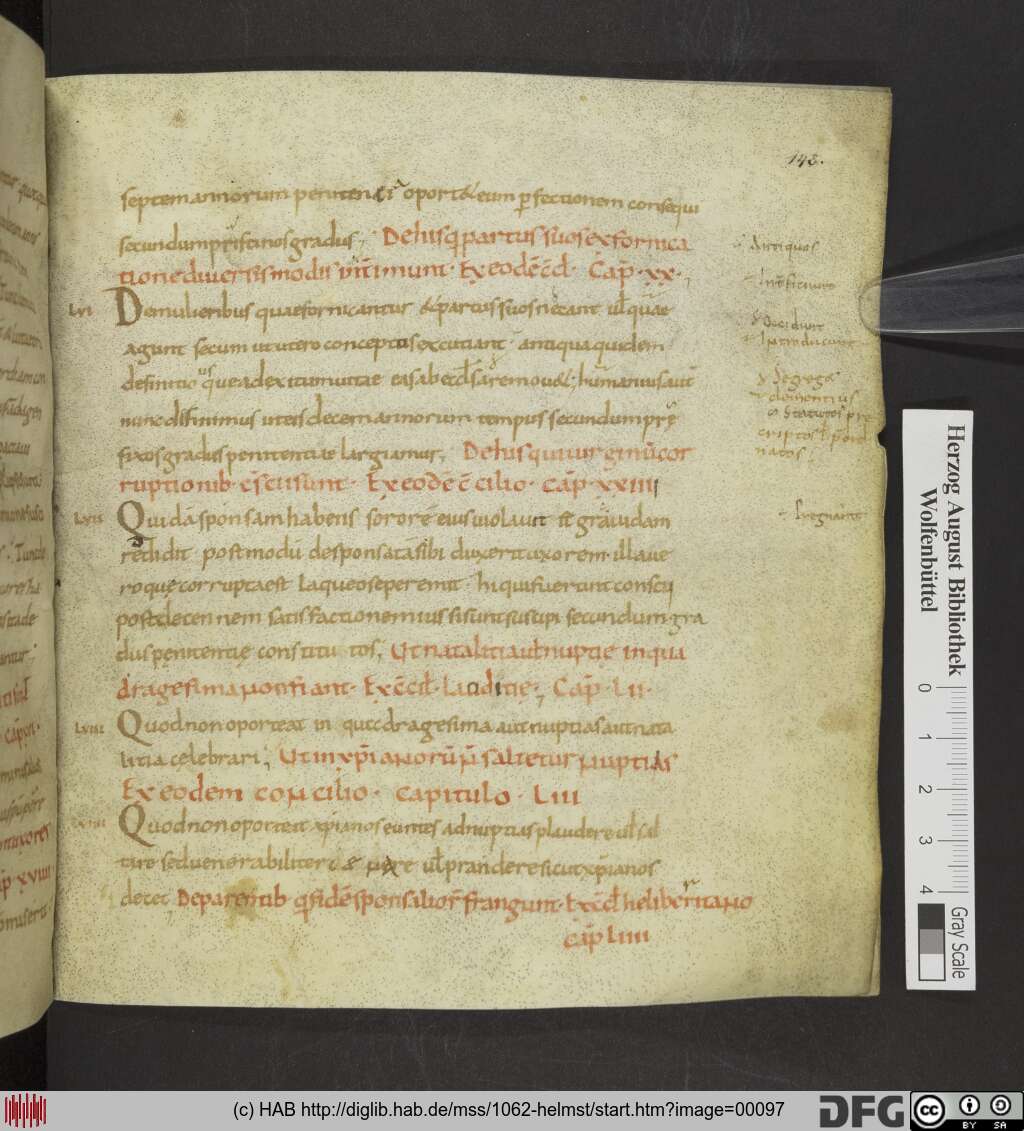 143.
septem annorum peniten oport& eum p̱fectionem consequi
secundum pristinos gradus; De his q̱ partus suos ex fornica
tione diversis modis int̄imunt· Ex eodē c̄c̄l· Cap̄· xx·;
LVI De mulieribus quae fornicantur & partus suos necant ul̄ quae
agunt secum ut utero conceptus excutiant· antiqua quidem
definitio usque ad exitum uitae eas ab eccl̄
nunc diffinimus ut eis decem annorum tempus secundum pre
fixos gradus penitentiae largiamur; De his qui uirginū cor
ruptionib· c̄scii sunt· Ex eodē c̄cilio· cap̄· xxiiii
LVII Quidā sponsam habens sororē eius uiolauit et grauidam
reddidit postmodū desponsatā sibi duxerit uxorem· illa ue
ro que corrupta est laqueo se peremit· hi qui fuerunt conscii
post decennem satisfactionem iussi sunt suscipi secundum gra
dus penitentie constitutos; Ut natalitia ul̄ nuptie in qua
dragesima non fiant· Ex c̄cil· Laoditie; Cap̄· LII·
LVIII Quod non oporteat in quadragesima aut nuptias aut nata
litia celebrari; Ut in xp̄ianorū n̄ saltetur nuptias
Ex eodem concilio· capitulo· LIII
Quod non oporteat xp̄ianos euntes ad nuptias plaudere ul̄ sal
tare sed uenerabiliter cenare ul̄ prandere sicut xp̄ianos
decet; De parentib· q̱ fidē sponsalior̄ frangunt· Ex c̄cl̄ helibertano
cap̄ LIIII
Antiquos
Introducunt
Segrega
clementius
statutos pre
Pregnante
Herzog August Bibliothek
Wolfenbüttel
0 1 2 3 4
Gray Scale
(c) HAB http://diglib.hab.de/mss/1062-helmst/start.htm?image=00097
DFG
cc BY SA